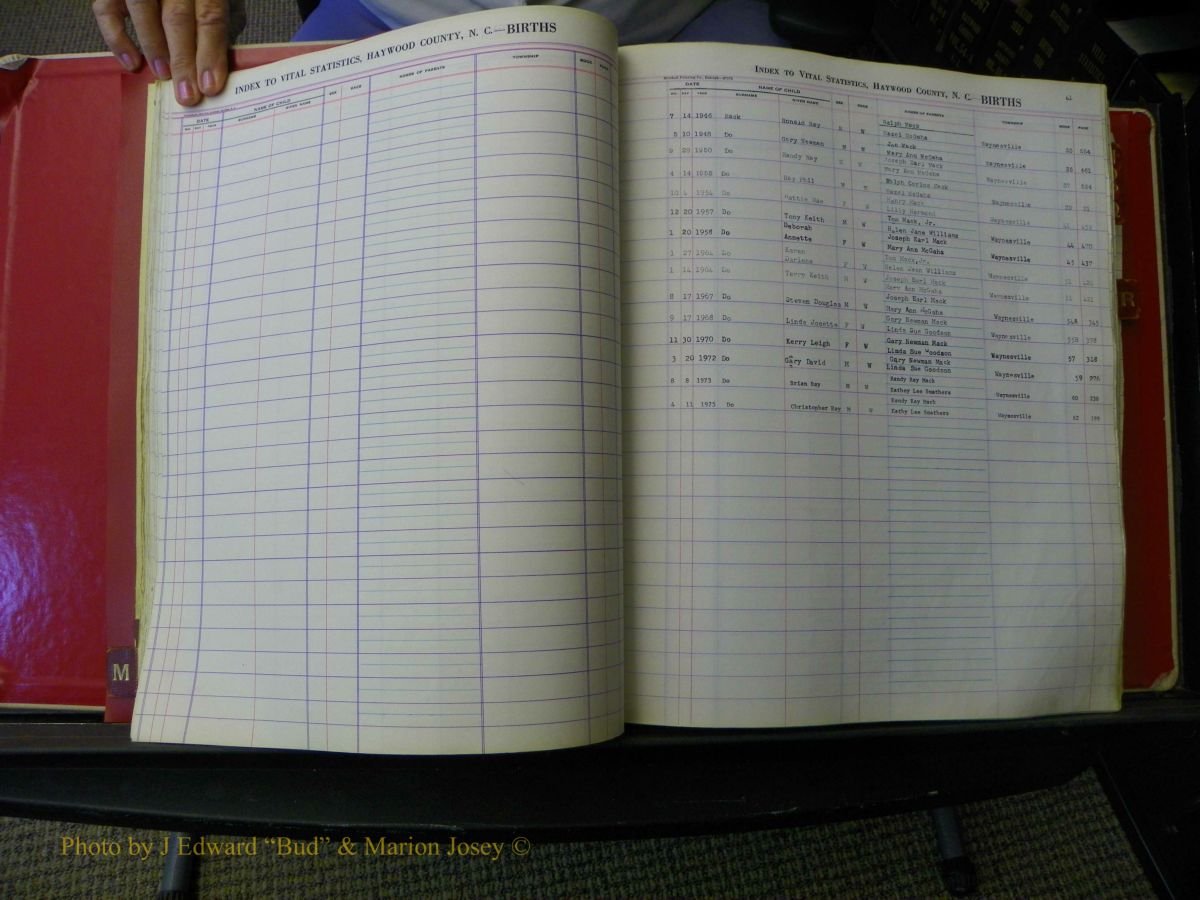 INDEX TO VITAL STATISTICS, HAYWOOD COUNTY, N. C.—BIRTHS
DATE NAME OF CHILD SEX RACE NAMES OF PARENTS TOWNSHIP BOOK PAGE
MO. DAY YEAR SURNAME GIVEN NAME
INDEX TO VITAL STATISTICS, HAYWOOD COUNTY, N. C.—BIRTHS
DATE NAME OF CHILD SEX RACE NAMES OF PARENTS TOWNSHIP BOOK PAGE
MO. DAY YEAR SURNAME GIVEN NAME
7 14 1946 Mack Ronald Ray M W Ralph Mack Waynesville
Hazel McGaha
5 10 1948 Do Gary Newman M W Jon Mack Waynesville
Mary Ann McGaha
9 28 1950 Do Randy Ray W Joseph Earl Mack Waynesville
Mary Ann McGaha
4 14 Do Ray Phil M Ralph Carlos Mack Waynesville
Hazel McGaha
10 1954 Do Hattie Mae Henry Mack Waynesville
Lilly
12 20 1957 Do Tony Keith M W Tom Mack, Jr. Waynesville 44 470
Helen Jane Williams
1 20 1958 Do Deborah Annette F W Joseph Earl Mack Waynesville 45 437
Mary Ann McGaha
1 27 1964 Do Karen Darlene F W Tom Mack, Jr. Waynesville
Helen Jean Williams
1 14 1964 Do Terry Keith M W Joseph Earl Mack Waynesville
Mary Ann McGaha
8 17 1967 Do Steven Douglas M W Joseph Earl Mack Waynesville 54A 345
Mary Ann McGaha
9 17 1968 Do Linda Josette F W Gary Newman Mack Waynesville 55B 378
Linda Sue Goodson
11 30 1970 Do Kerry Leigh F W Gary Newman Mack Waynesville 57 318
Linda Sue Woodson
3 20 1972 Do Gary David M W Gary Newman Mack Waynesville 59
Linda Sue Goodson
8 8 1973 Do Brian Ray M W Randy Ray Mack Waynesville 60 238
Kathey Lee Smathers
4 11 1975 Do Christopher Ray M W Randy Ray Mack Waynesville 62 199
Kathy Lee Smathers
M
R
Photo by J Edward “Bud” & Marion Josey ©